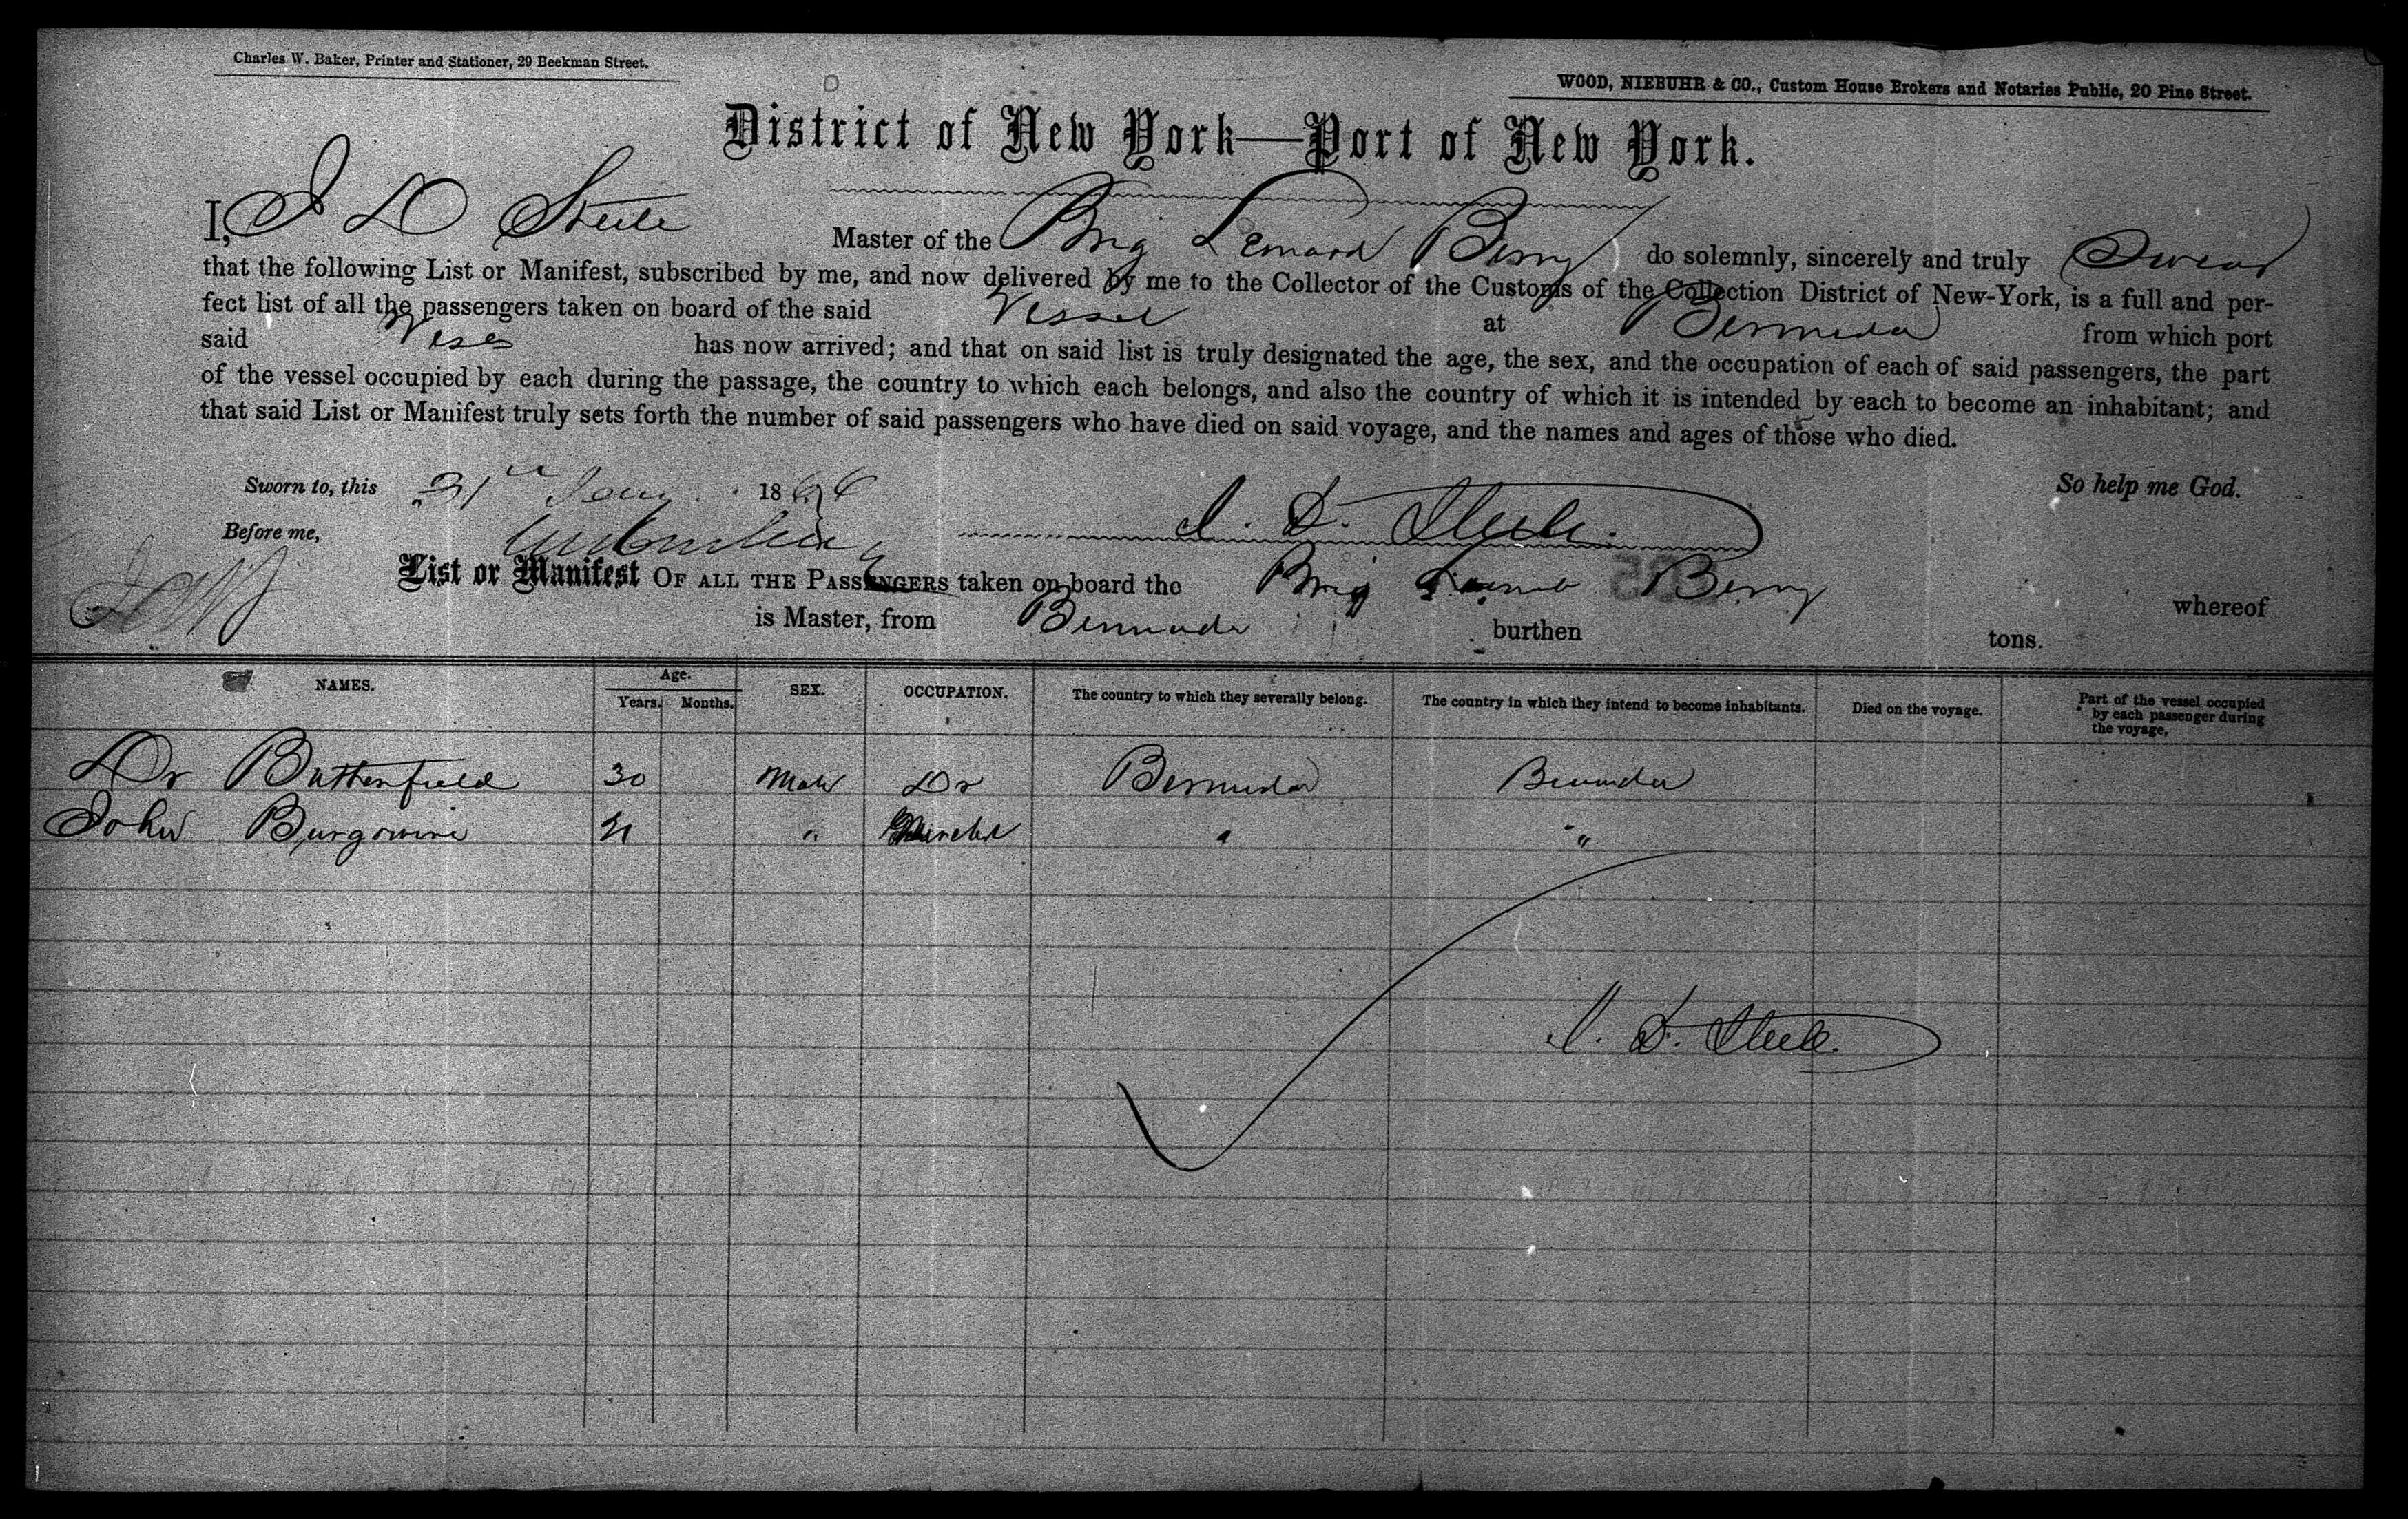 Charles W. Baker, Printer and Stationer, 29 Beekman Street.
WOOD, NIEBUHR & CO., Custom House Brokers and Notaries Public, 20 Pine Street.
District of New York—Port of New York.
I, J D Steele Master of the Brig Lemard Berry do solemnly, sincerely and truly Swear
that the following List or Manifest, subscribed by me, and now delivered by me to the Collector of the Customs of the Collection District of New-York, is a full and per-
fect list of all the passengers taken on board of the said Vessel at Bermuda from which port
said Vess has now arrived; and that on said list is truly designated the age, the sex, and the occupation of each of said passengers, the part
of the vessel occupied by each during the passage, the country to which each belongs, and also the country of which it is intended by each to become an inhabitant; and
that said List or Manifest truly sets forth the number of said passengers who have died on said voyage, and the names and ages of those who died.
Sworn to, this 31st Jany 1866 So help me God.
Before me, J. D. Steele.
List or Manifest OF ALL THE PASSENGERS taken on board the Brig Berry whereof
is Master, from Bermuda burthen tons.
NAMES. Age. Years. Months. SEX. OCCUPATION. The country to which they severally belong. The country in which they intend to become inhabitants. Died on the voyage. Part of the vessel occupied by each passenger during the voyage.
Dr Butterfield 30 Male Dr Bermuda Bermuda
John Burgowine 21 " " "
J. D. Steele.